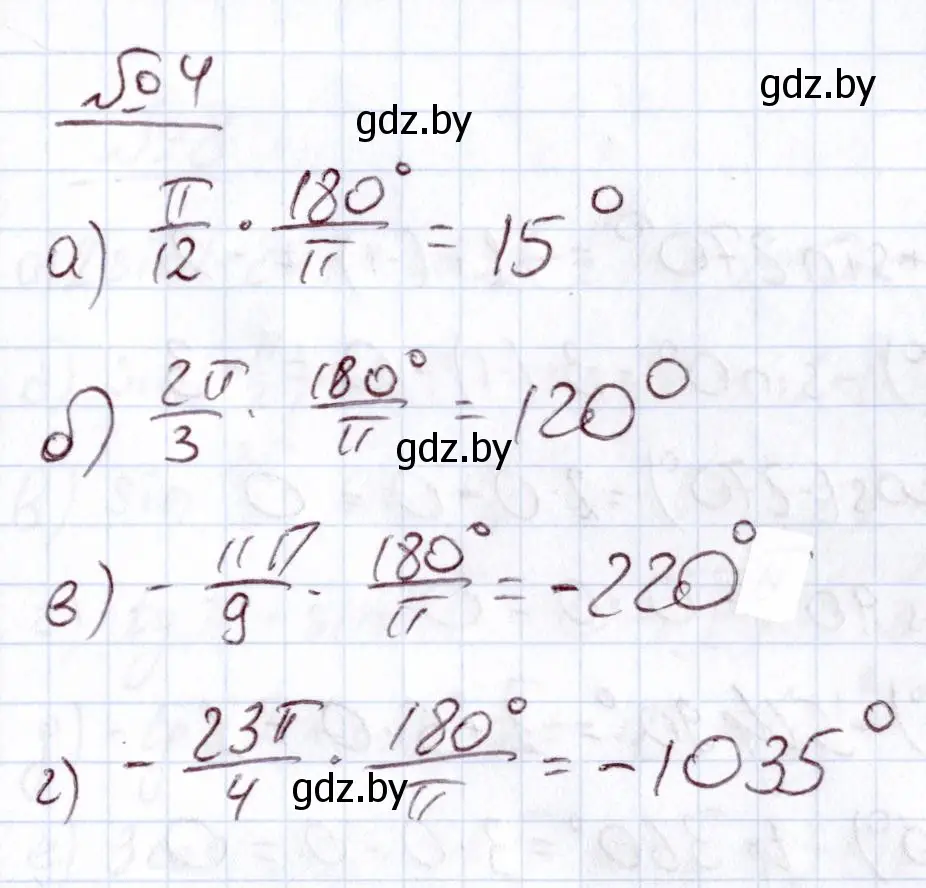 № 4
gdz.by
gdz.by
а) π/12 · 180°/π = 15°
б) 2π/3 · 180°/π = 120°
gdz.by
в) - 11π/9 · 180°/π = -220°
г) - 23π/4 · 180°/π = -1035°
gdz.by